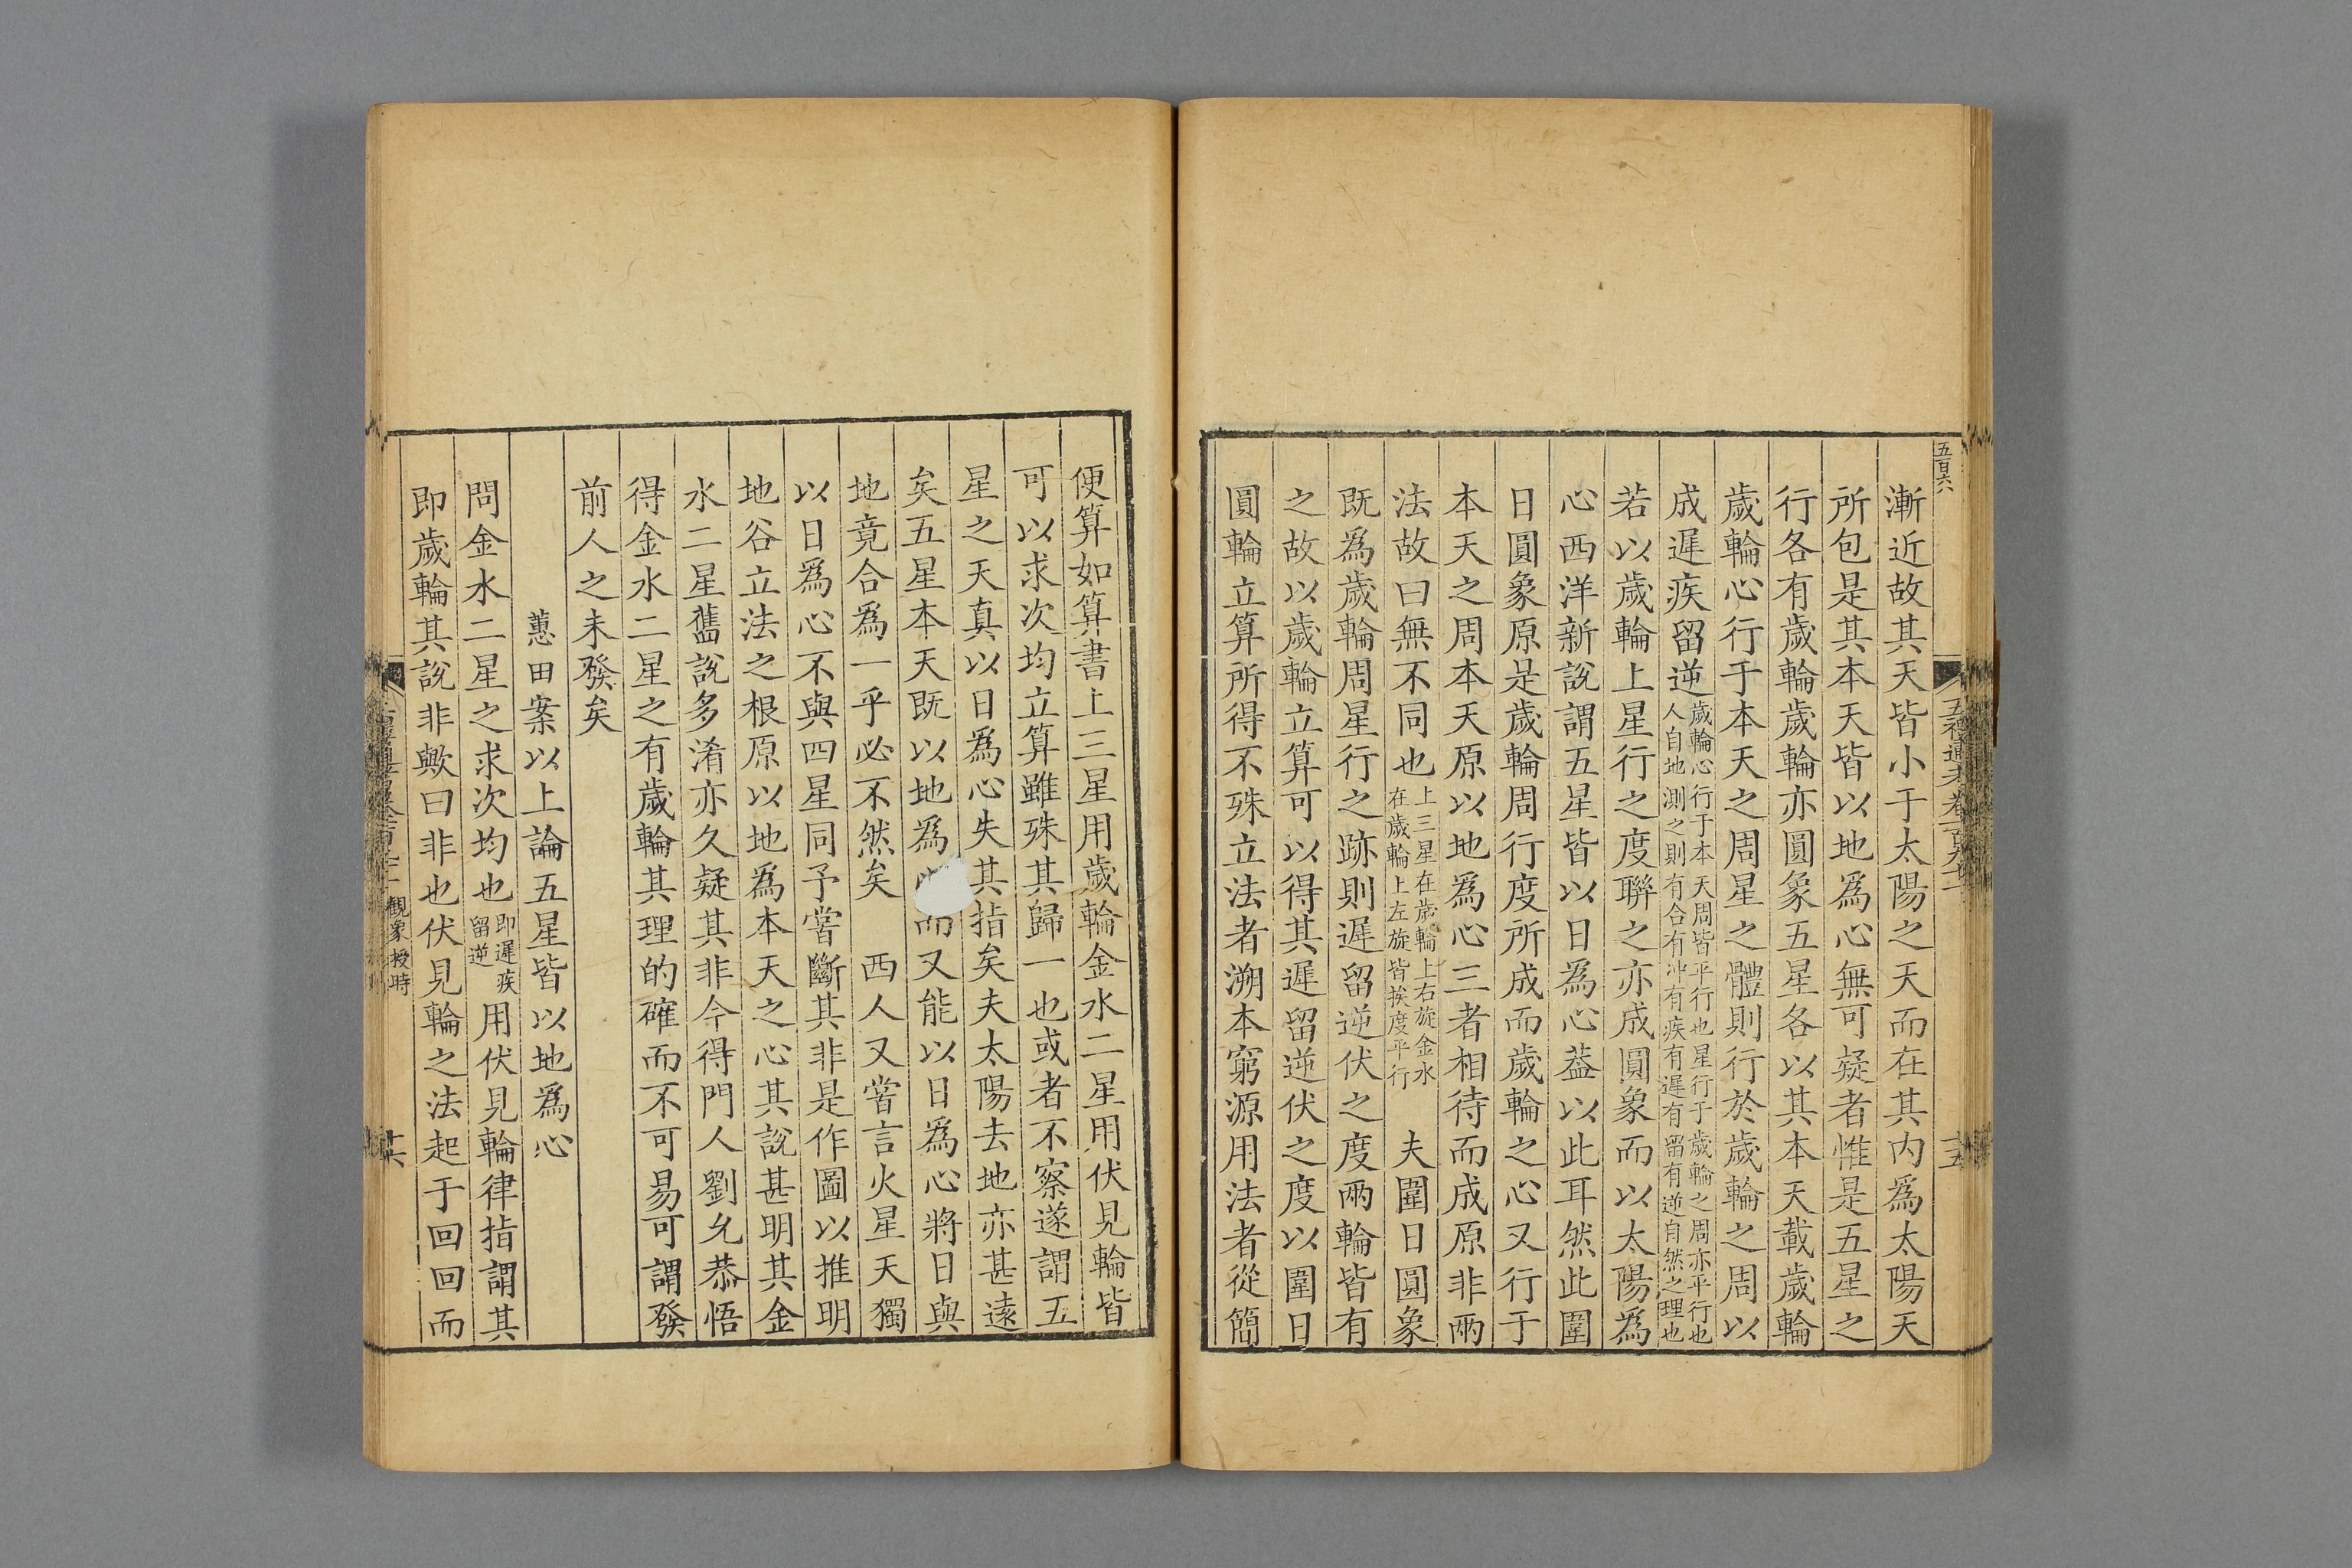 五百六八
漸近故其天皆小于太陽之天而在其内爲太陽天
所包是其本天皆以地爲心無可疑者惟是五星之
行各有歲輪歲輪亦圓象五星各以其本天載歲輪
歲輪心行于本天之周星之體則行於歲輪之周以
成遲疾留逆歲輪心行于本天周皆平行也星行于歲輪之周亦平行也
人自地測之則有合有冲有疾有遲有留有逆自然之理也
若以歲輪上星行之度聯之亦成圓象而以太陽爲
心西洋新說謂五星皆以日爲心葢以此耳然此圍
日圓象原是歲輪周行度所成而歲輪之心又行于
本天之周本天原以地爲心三者相待而成原非兩
法故曰無不同也上三星在歲輪上右旋金水
在歲輪上左旋皆挨度平行 夫圍日圓象
既爲歲輪周星行之跡則遲留逆伏之度兩輪皆有
之故以歲輪立算可以得其遲留逆伏之度以圍日
圓輪立算所得不殊立法者溯本窮源用法者從簡
便算如算書上三星用歲輪金水二星用伏見輪皆
可以求次均立算雖殊其歸一也或者不察遂謂五
星之天真以日爲心失其指矣夫太陽去地亦甚遠
矣五星本天既以地爲而又能以日爲心將日與
地竟合爲一乎必不然矣 西人又嘗言火星天獨
以日爲心不與四星同予嘗斷其非是作圖以推明
地谷立法之根原以地爲本天之心其說甚明其金
水二星舊說多淆亦久疑其非今得門人劉允恭悟
得金水二星之有歲輪其理的確而不可易可謂發
前人之未發矣
蕙田案以上論五星皆以地爲心
問金水二星之求次均也即遲疾
留逆用伏見輪律指謂其
即歲輪其說非歟曰非也伏見輪之法起于回回而
觀象授時